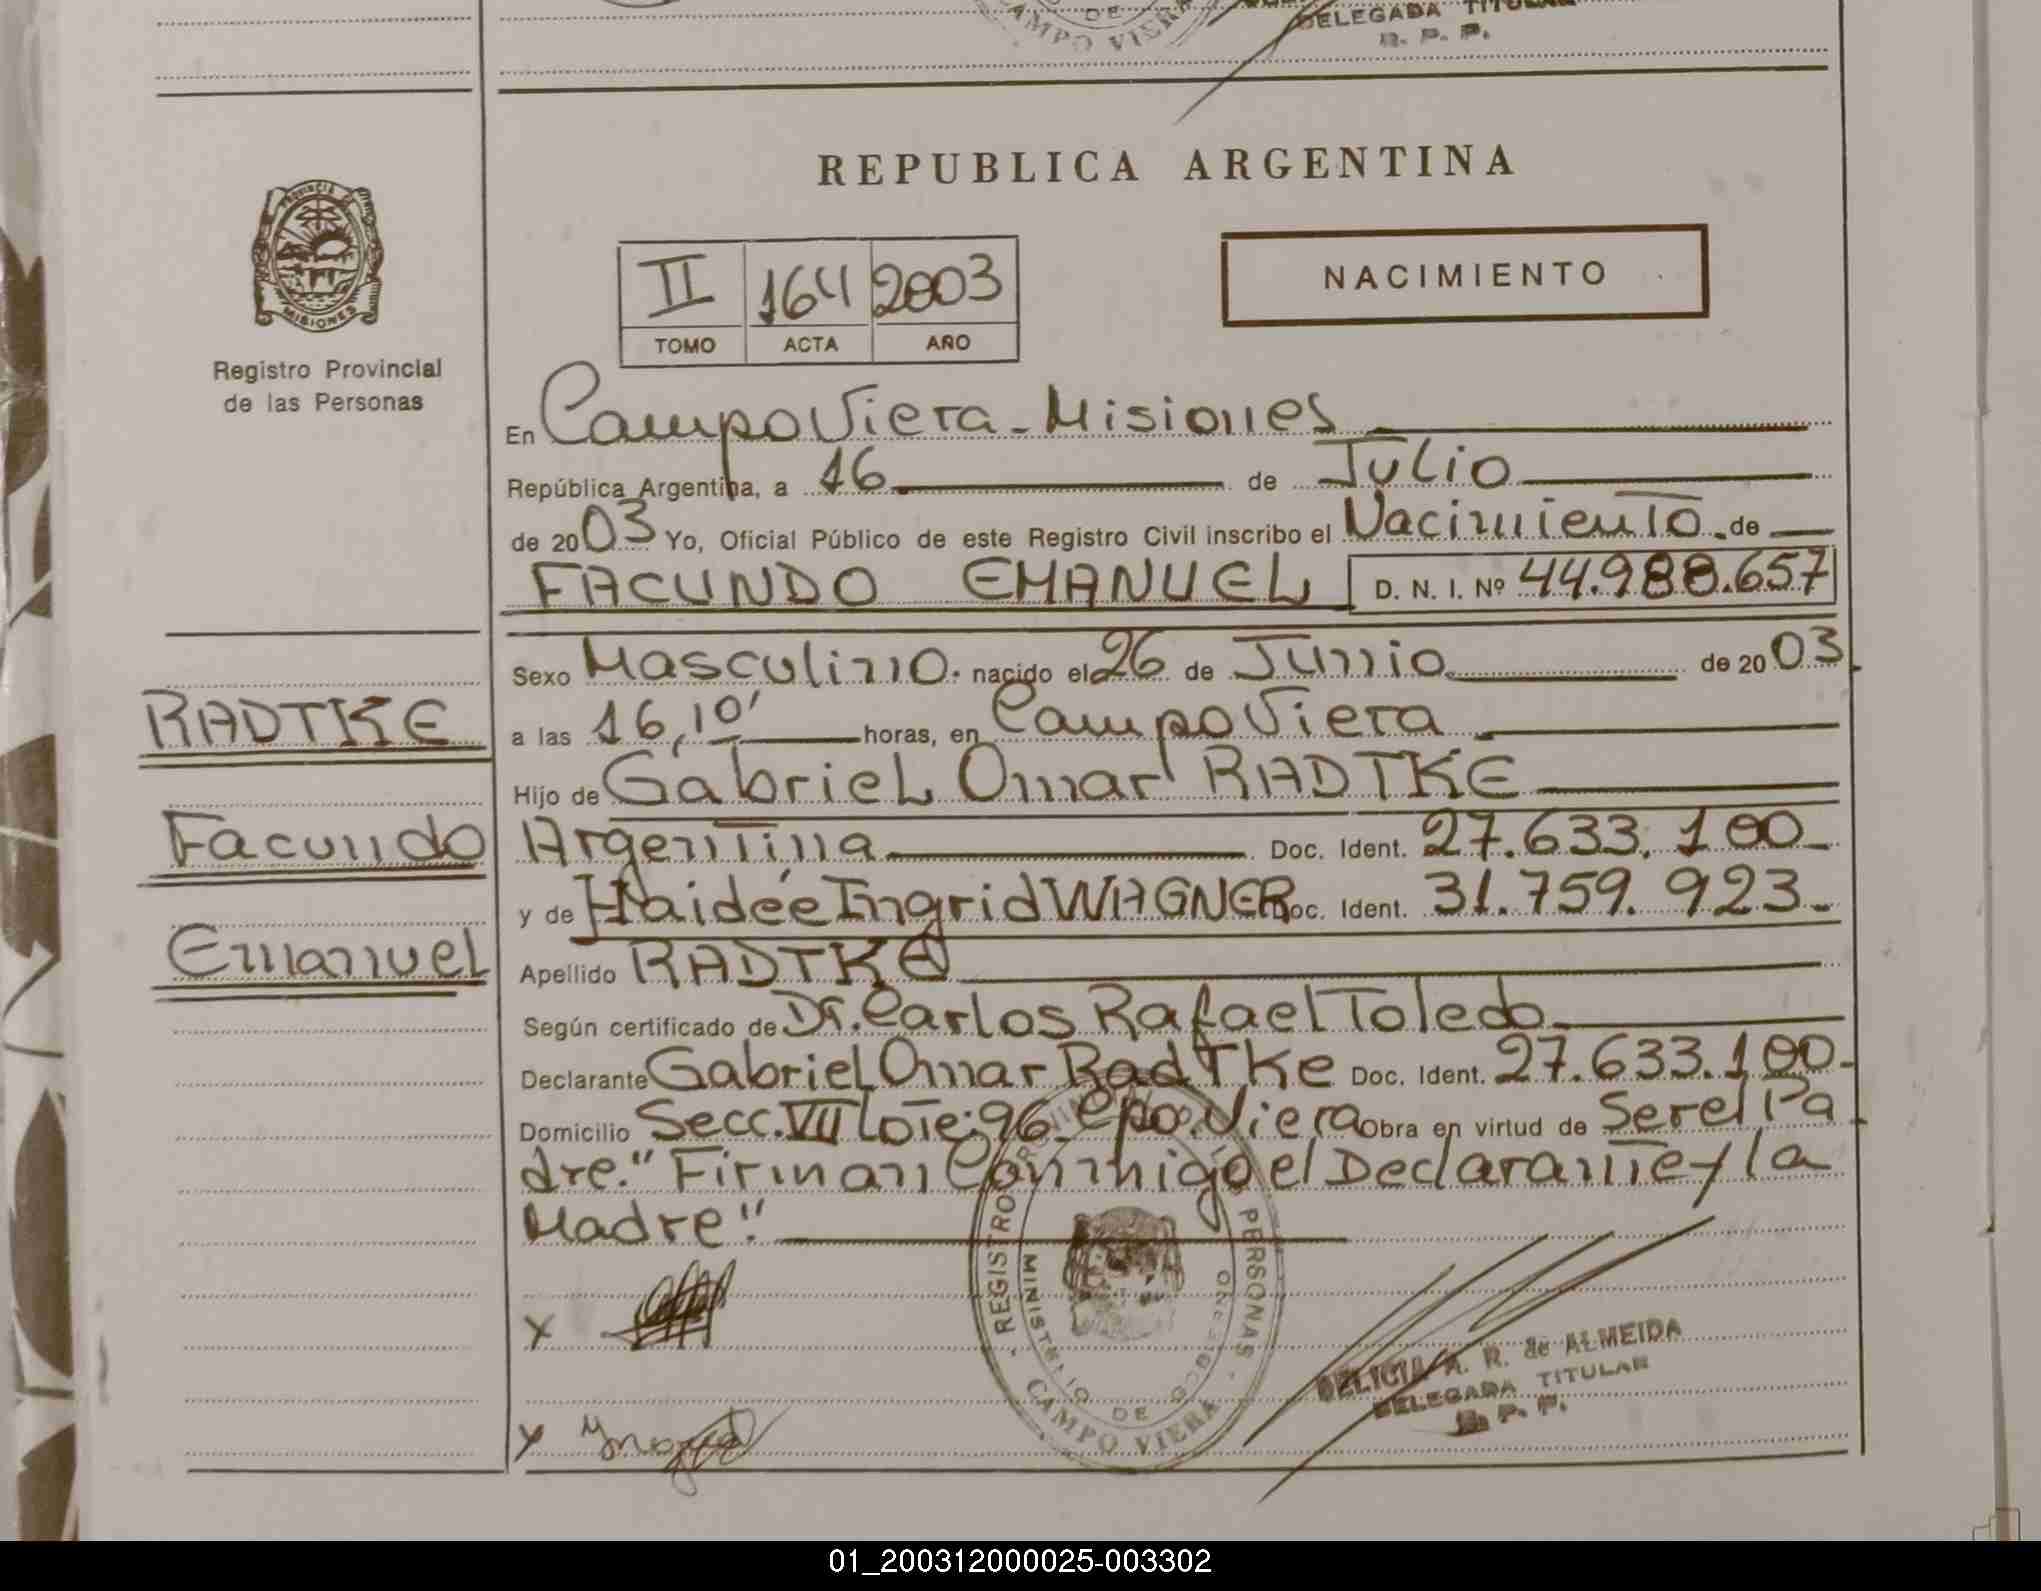 CAMPO VIERA
DE
DELEGADA TITULAR
R. P. P.
REPUBLICA ARGENTINA
PROVINCIA
MISIONES
Registro Provincial
de las Personas
II 164 2003
TOMO ACTA AÑO
NACIMIENTO
En Campo Viera - Misiones
República Argentina, a 16 de Julio
de 2003 Yo, Oficial Público de este Registro Civil inscribo el Nacimiento de
FACUNDO EMANUEL D. N. I. Nº 44.988.657
Sexo Masculino. nacido el 26 de Junio de 2003
RADTKE
a las 16,10' horas, en Campo Viera
Hijo de Gabriel Omar RADTKE
Facundo
Argentina Doc. Ident. 27.633.100-
y de Haidée Ingrid WAGNER Doc. Ident. 31.759.923-
Emanuel
Apellido RADTKE
Según certificado de Dr. Carlos Rafael Toledo
Declarante Gabriel Omar Radtke Doc. Ident. 27.633.100-
Domicilio Secc. VII Lote: 96 Cpo. Viera Obra en virtud de Ser el Pa
dre." Firman Conmigo el Declarante y la
Madre".
REGISTRO PROVINCIAL DE LAS PERSONAS
MINISTERIO DE GOBIERNO
CAMPO VIERA
X
X Ingrid
DELICIA A. R. de ALMEIDA
DELEGADA TITULAR
R. P. P.
01_200312000025-003302